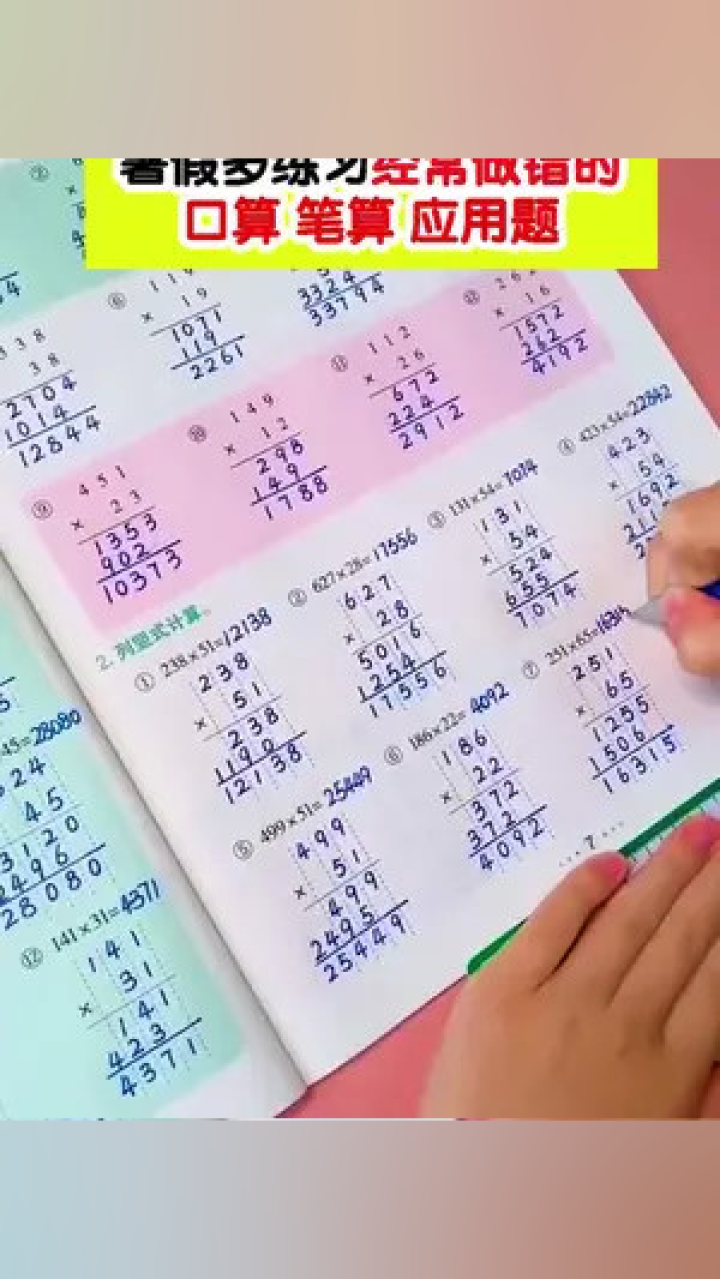 暑假多练习经常做错的
口算 笔算 应用题
⑥
× 19
1071
119
2261
3324
33794
338
38
2704
1014
12844
⑨
451
× 23
1353
902
10373
⑩
149
× 12
298
149
1788
⑪
112
× 26
672
224
2912
⑫
× 16
1572
262
4192
2. 列竖式计算。
① 238×51=12138
238
× 51
238
1190
12138
② 627×28=17556
627
× 28
5016
1254
17556
③ 131×54=7074
131
× 54
524
655
7074
④ 423×54=22842
423
× 54
1692
⑤ 499×51=25449
499
× 51
499
2495
25449
⑥ 186×22=4092
186
× 22
372
372
4092
⑦ 251×65=16315
251
× 65
1255
1506
16315
45=28080
624
45
3120
2496
28080
⑰ 141×31=4371
141
× 31
141
423
4371
7